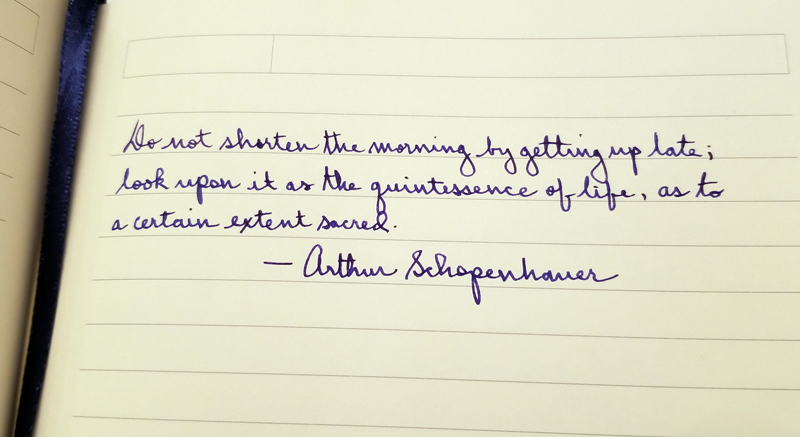 Do not shorten the morning by getting up late;
look upon it as the quintessence of life, as to
a certain extent sacred.
— Arthur Schopenhauer